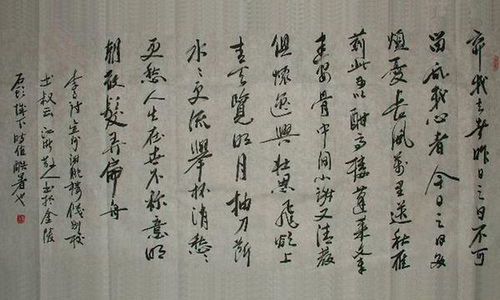 弃我去者昨日之日不可
留乱我心者今日之日多
烦忧长风万里送秋雁
对此可以酣高楼蓬莱文章
建安骨中间小谢又清发
俱怀逸興壮思飞欲上
青天覽明月抽刀断
水々更流舉杯消愁
更愁人生在世不称意明
朝散髮弄扁舟
李白诗宣州谢朓楼饯别校
书叔云 人书於金陵